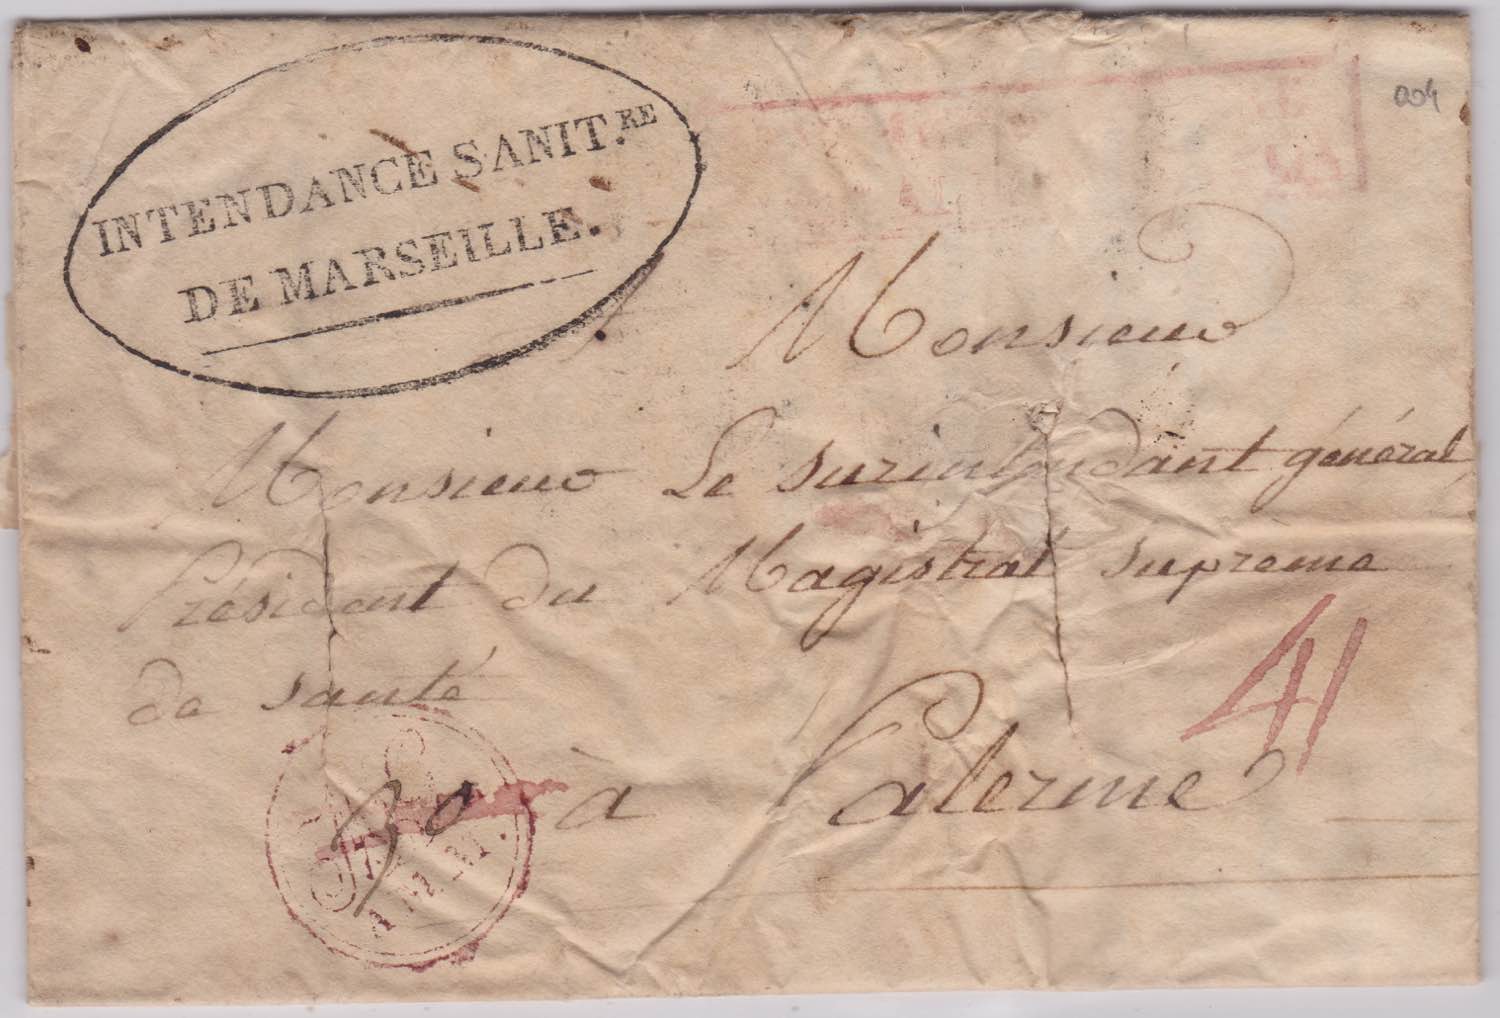 INTENDANCE SANIT.RE
DE MARSEILLE.
004
Monsieur
Monsieur Le surintendant général,
Président du Magistrat supreme
de santé
41
30
à Palerme